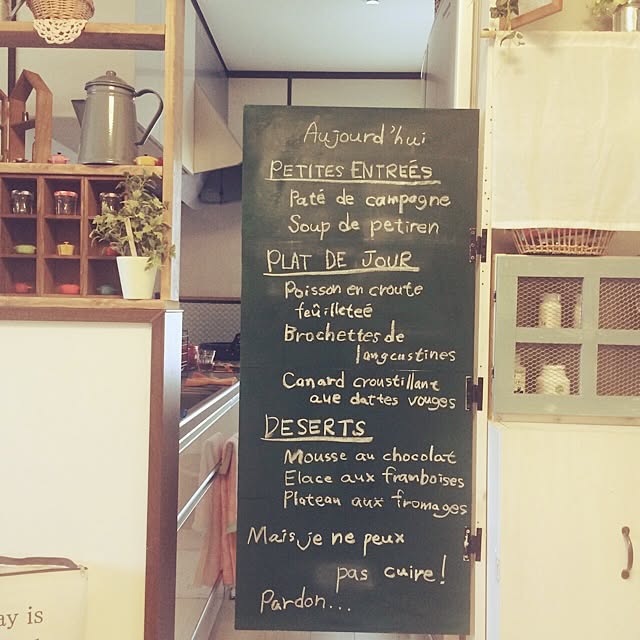 Aujourd'hui
PETITES ENTREÉS
Paté de campagne
Soup de petiren
PLAT DE JOUR
Poisson en croute
feuîlleteé
Brochettes de
langcustines
Canard croustillant
aue dattes vouges
DESERTS
Mousse au chocolat
Elace aux framboises
Plateau aux fromages
Mais je ne peux
pas cuire!
Pardon...
ay is